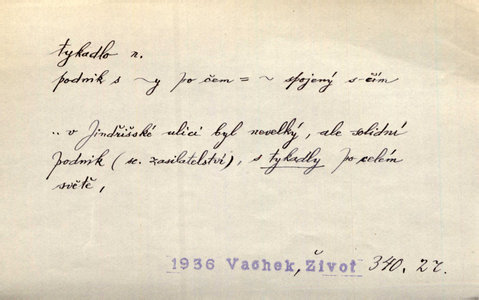 tykadlo n.
podnik s ~y po čem = ~ spojený s čím
.. v Jindřišské ulici byl nevelký, ale solidní
podnik (sc. zasilatelství), s tykadly po celém
světě,
1936 Vachek, Život 340. 27.